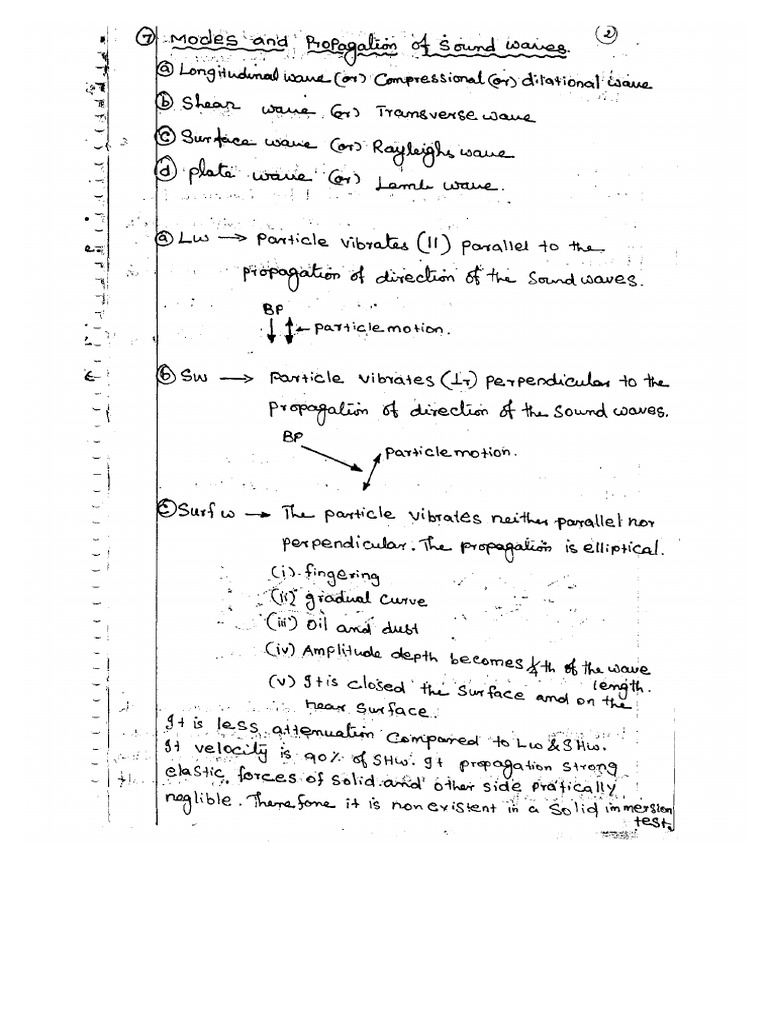 ② 
⑦ Modes and Propagation of Sound waves.
ⓐ Longitudinal wave (or) Compressional (or) dilational wave
ⓑ Shear wave (or) Transverse wave
ⓒ Surface wave (or) Rayleighs wave
ⓓ plate wave (or) Lamb wave.
ⓐ LW → Particle vibrates (||) parallel to the
propagation of direction of the Sound waves.
BP
particle motion.
ⓑ SW → Particle vibrates (⊥r) perpendicular to the
Propagation of direction of the Sound waves.
BP
particle motion.
ⓒ Surf w → The particle vibrates neither parallel nor
perpendicular. The propagation is elliptical.
(i) fingering
(ii) gradual curve
(iii) oil and dust
(iv) Amplitude depth becomes ¼th of the wave
length.
(v) It is closed the surface and on the
near surface.
It is less attenuation compared to LW & SHW.
It velocity is 90% of SHW. It propagation strong
elastic forces of solid and other side pratically
neglible. Therefore it is non existent in a solid immersion
test.